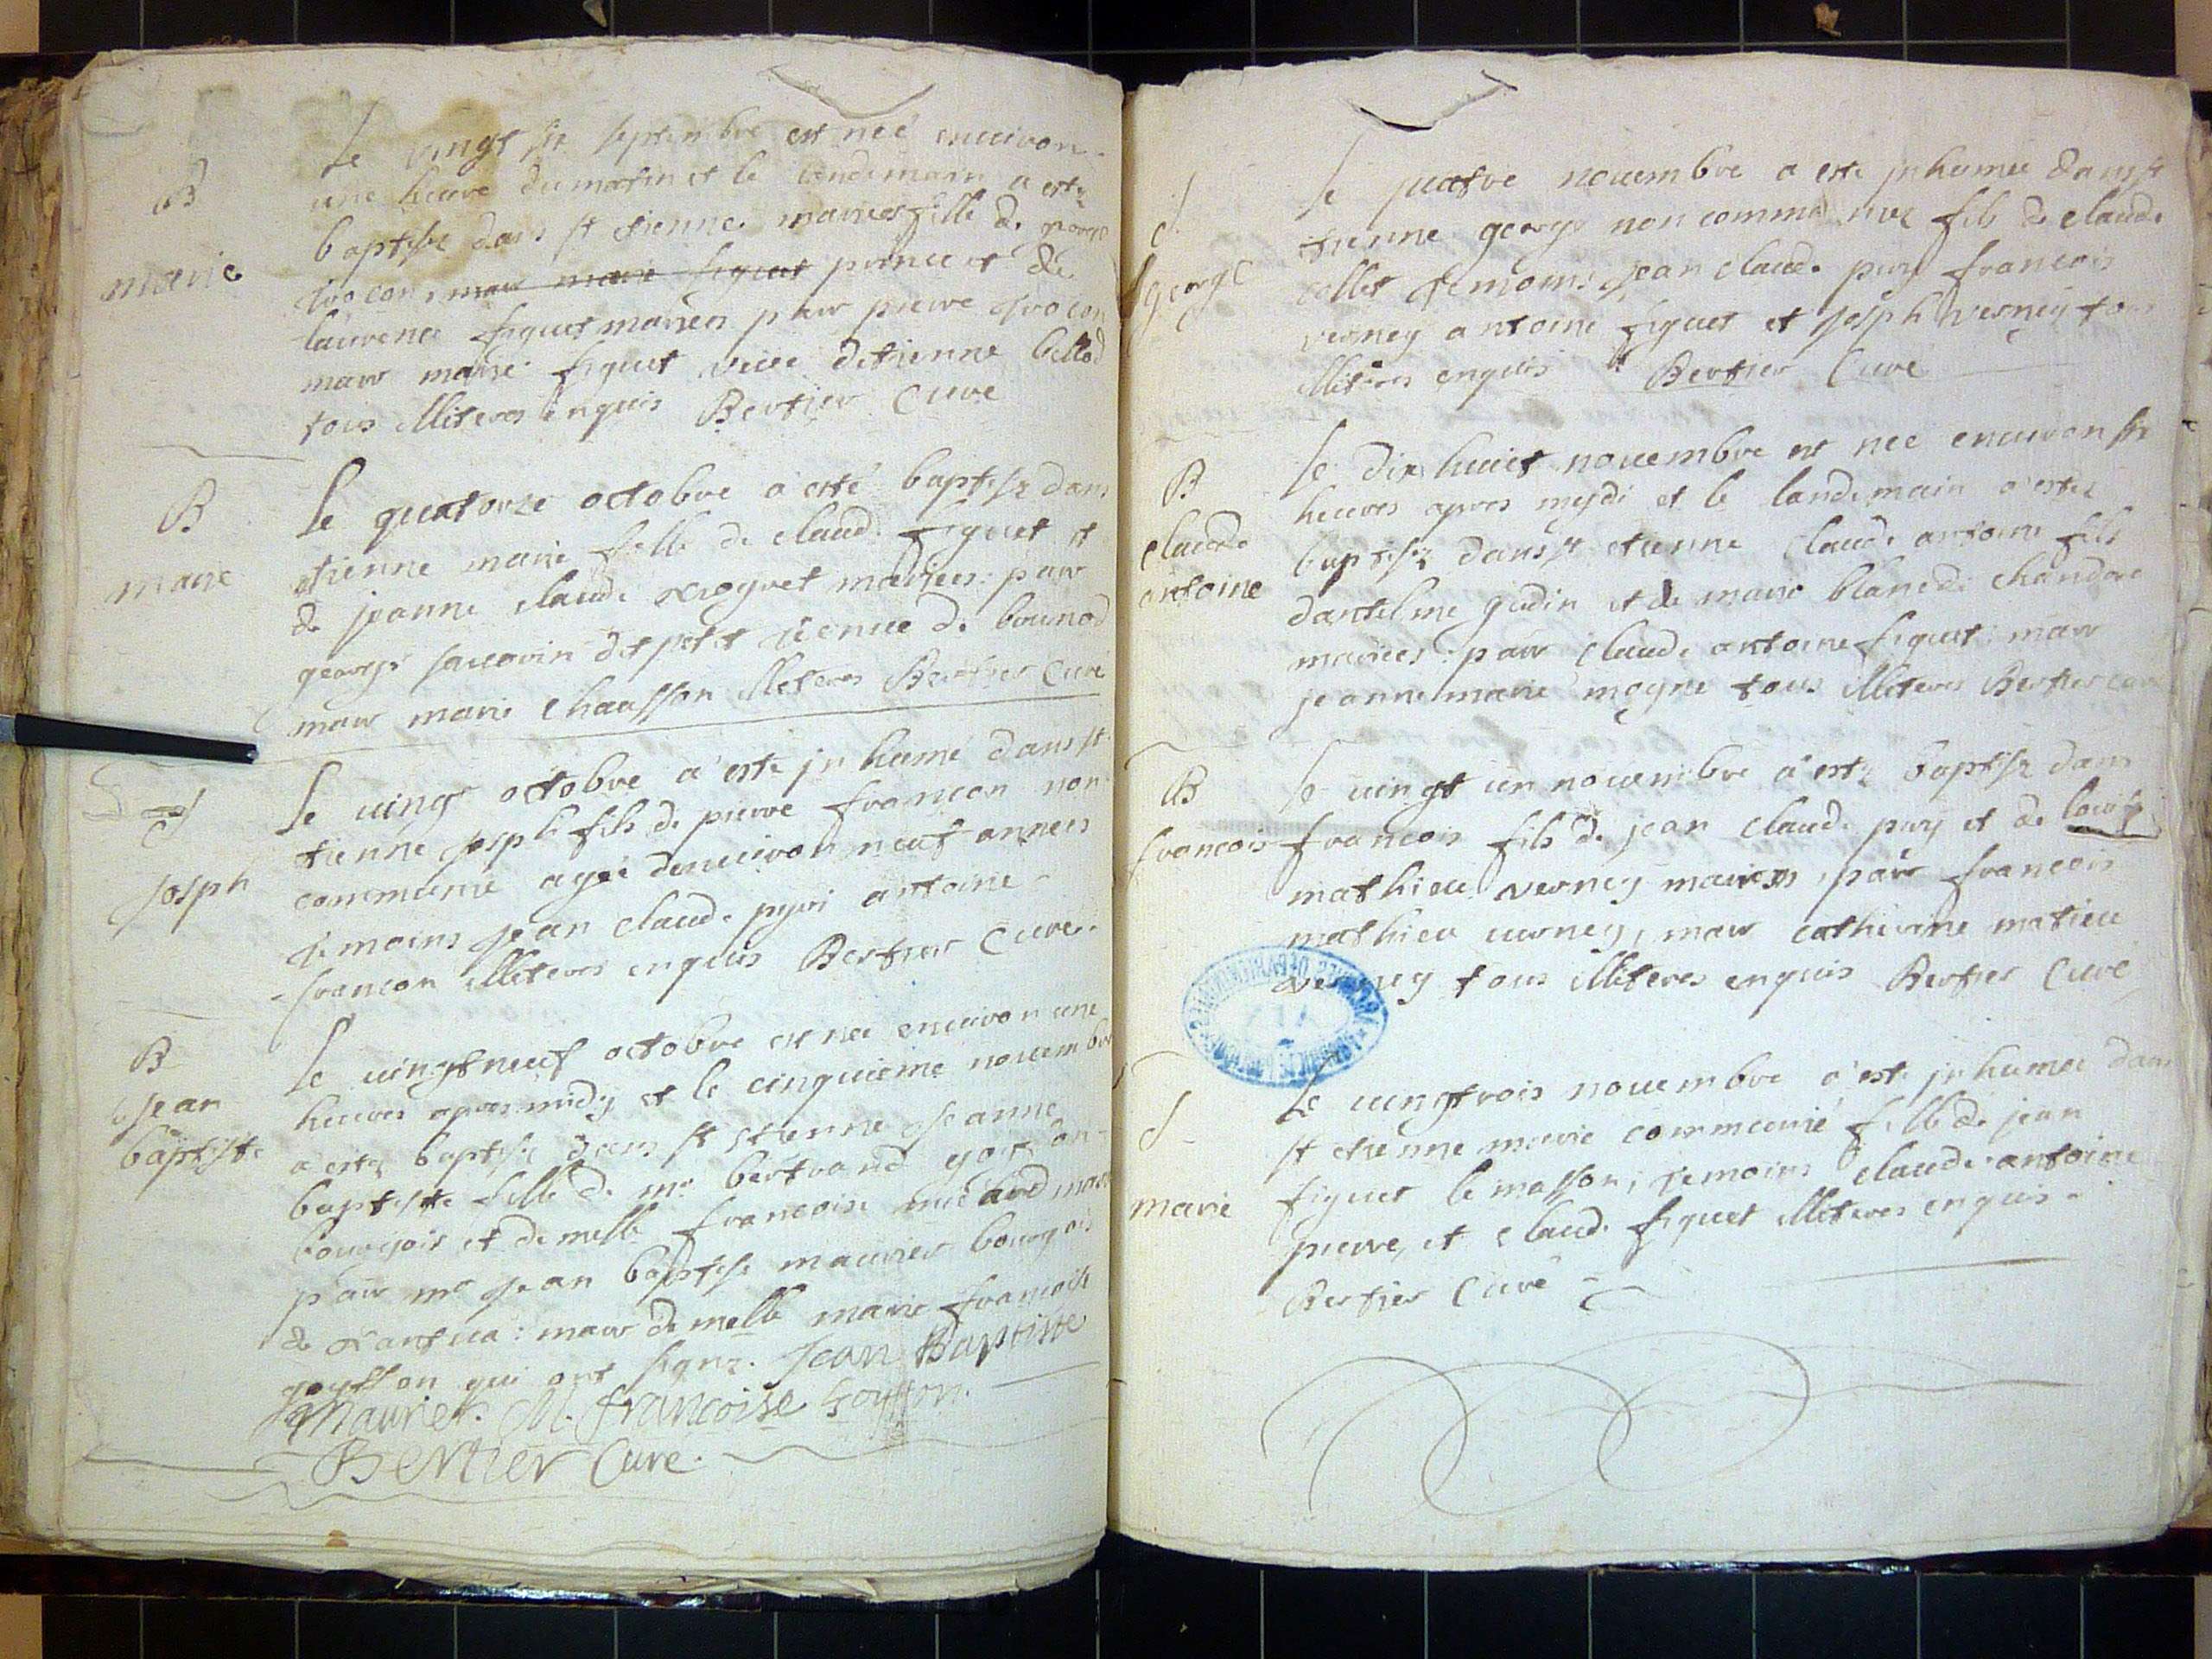 B
marie
Le vingt six septembre est neé enuiron
une heure du matin et le lendemain a estez
baptisez dans st etienne marie fille de george
trocon, mar marie figuet prince et de
laurence figuet mariers par pierre trocon
mar marie figuet veue detienne billod
tous illiteres enquis Bertier Curé
B
marie
le quatorze octobre a esté baptisez dans
etienne marie fille de claude figuet et
de jeanne claude mariees: par
george dit petit etienne de bournod
mar marie chausson illiteres Bertier Curé
S
joseph
le uingt octobre a este jnhumé dans st
etienne joseph fils de pierre francon non
communie ageé denuiron neuf anneés
temoins jean claude pyri antoine
francon illiteres enquis Bertier Curé.
B
jean
baptiste
le uingtneuf octobre est neé enuiron une
heures apres midy et le cinquieme nouembre
a estez baptisé dans st etienne jeanne
baptiste fille de mr bertrand
bourgois et de melle francoise
par mr jean baptiste maurier bourgois
de nantua: mar de melle marie francoise
goyffon qui ont signez. Jean Baptiste
Maurier. M. francoise Goyffon.
Bertier Curé.
S
george
le quatre nouembre a esté jnhumée dans st
etienne george non communiez fils de claude
collet temoins jean claude puy francois
verney antoine figuet et joseph verney tous
illiteres enquis Bertier Curé
B
claude
antoine
le dix huict nouembre est neé enuiron six
heures apres mydi et le landemain a estez
baptisez dans st etienne claude antoine fils
dantelme gudin et de marie blanc de chandore
mariees: par claude antoine figuet: mar
jeanne marie moyne tous illiteres Bertier curé
B
francois
le uingt un nouembre a estez baptisez dans
francois fils de jean claude puy et de louise
mathieu verney mariers, par francois
mathieu uerney, mar catherine matieu
verney tous illiteres enquis Bertier Curé
S
marie
Le uingtrois nouembre a este jnhumee dans
st etienne marie communié fille de jean
figuet le masson, temoins claude antoine
pierre, et claude figuet illiteres enquis.
Bertier Curé